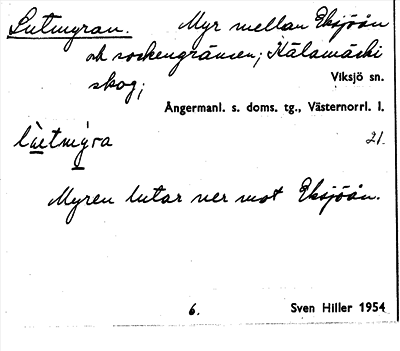 Lutmyran. Myr mellan Eksjöån
och sockengränsen; Kälamäcki
skog;
Viksjö sn.
Ångermanl. s. doms. tg., Västernorrl. l.
lù̱tmỳ̱ra 21.
Myren lutar ner mot Eksjöån.
6. Sven Hiller 1954